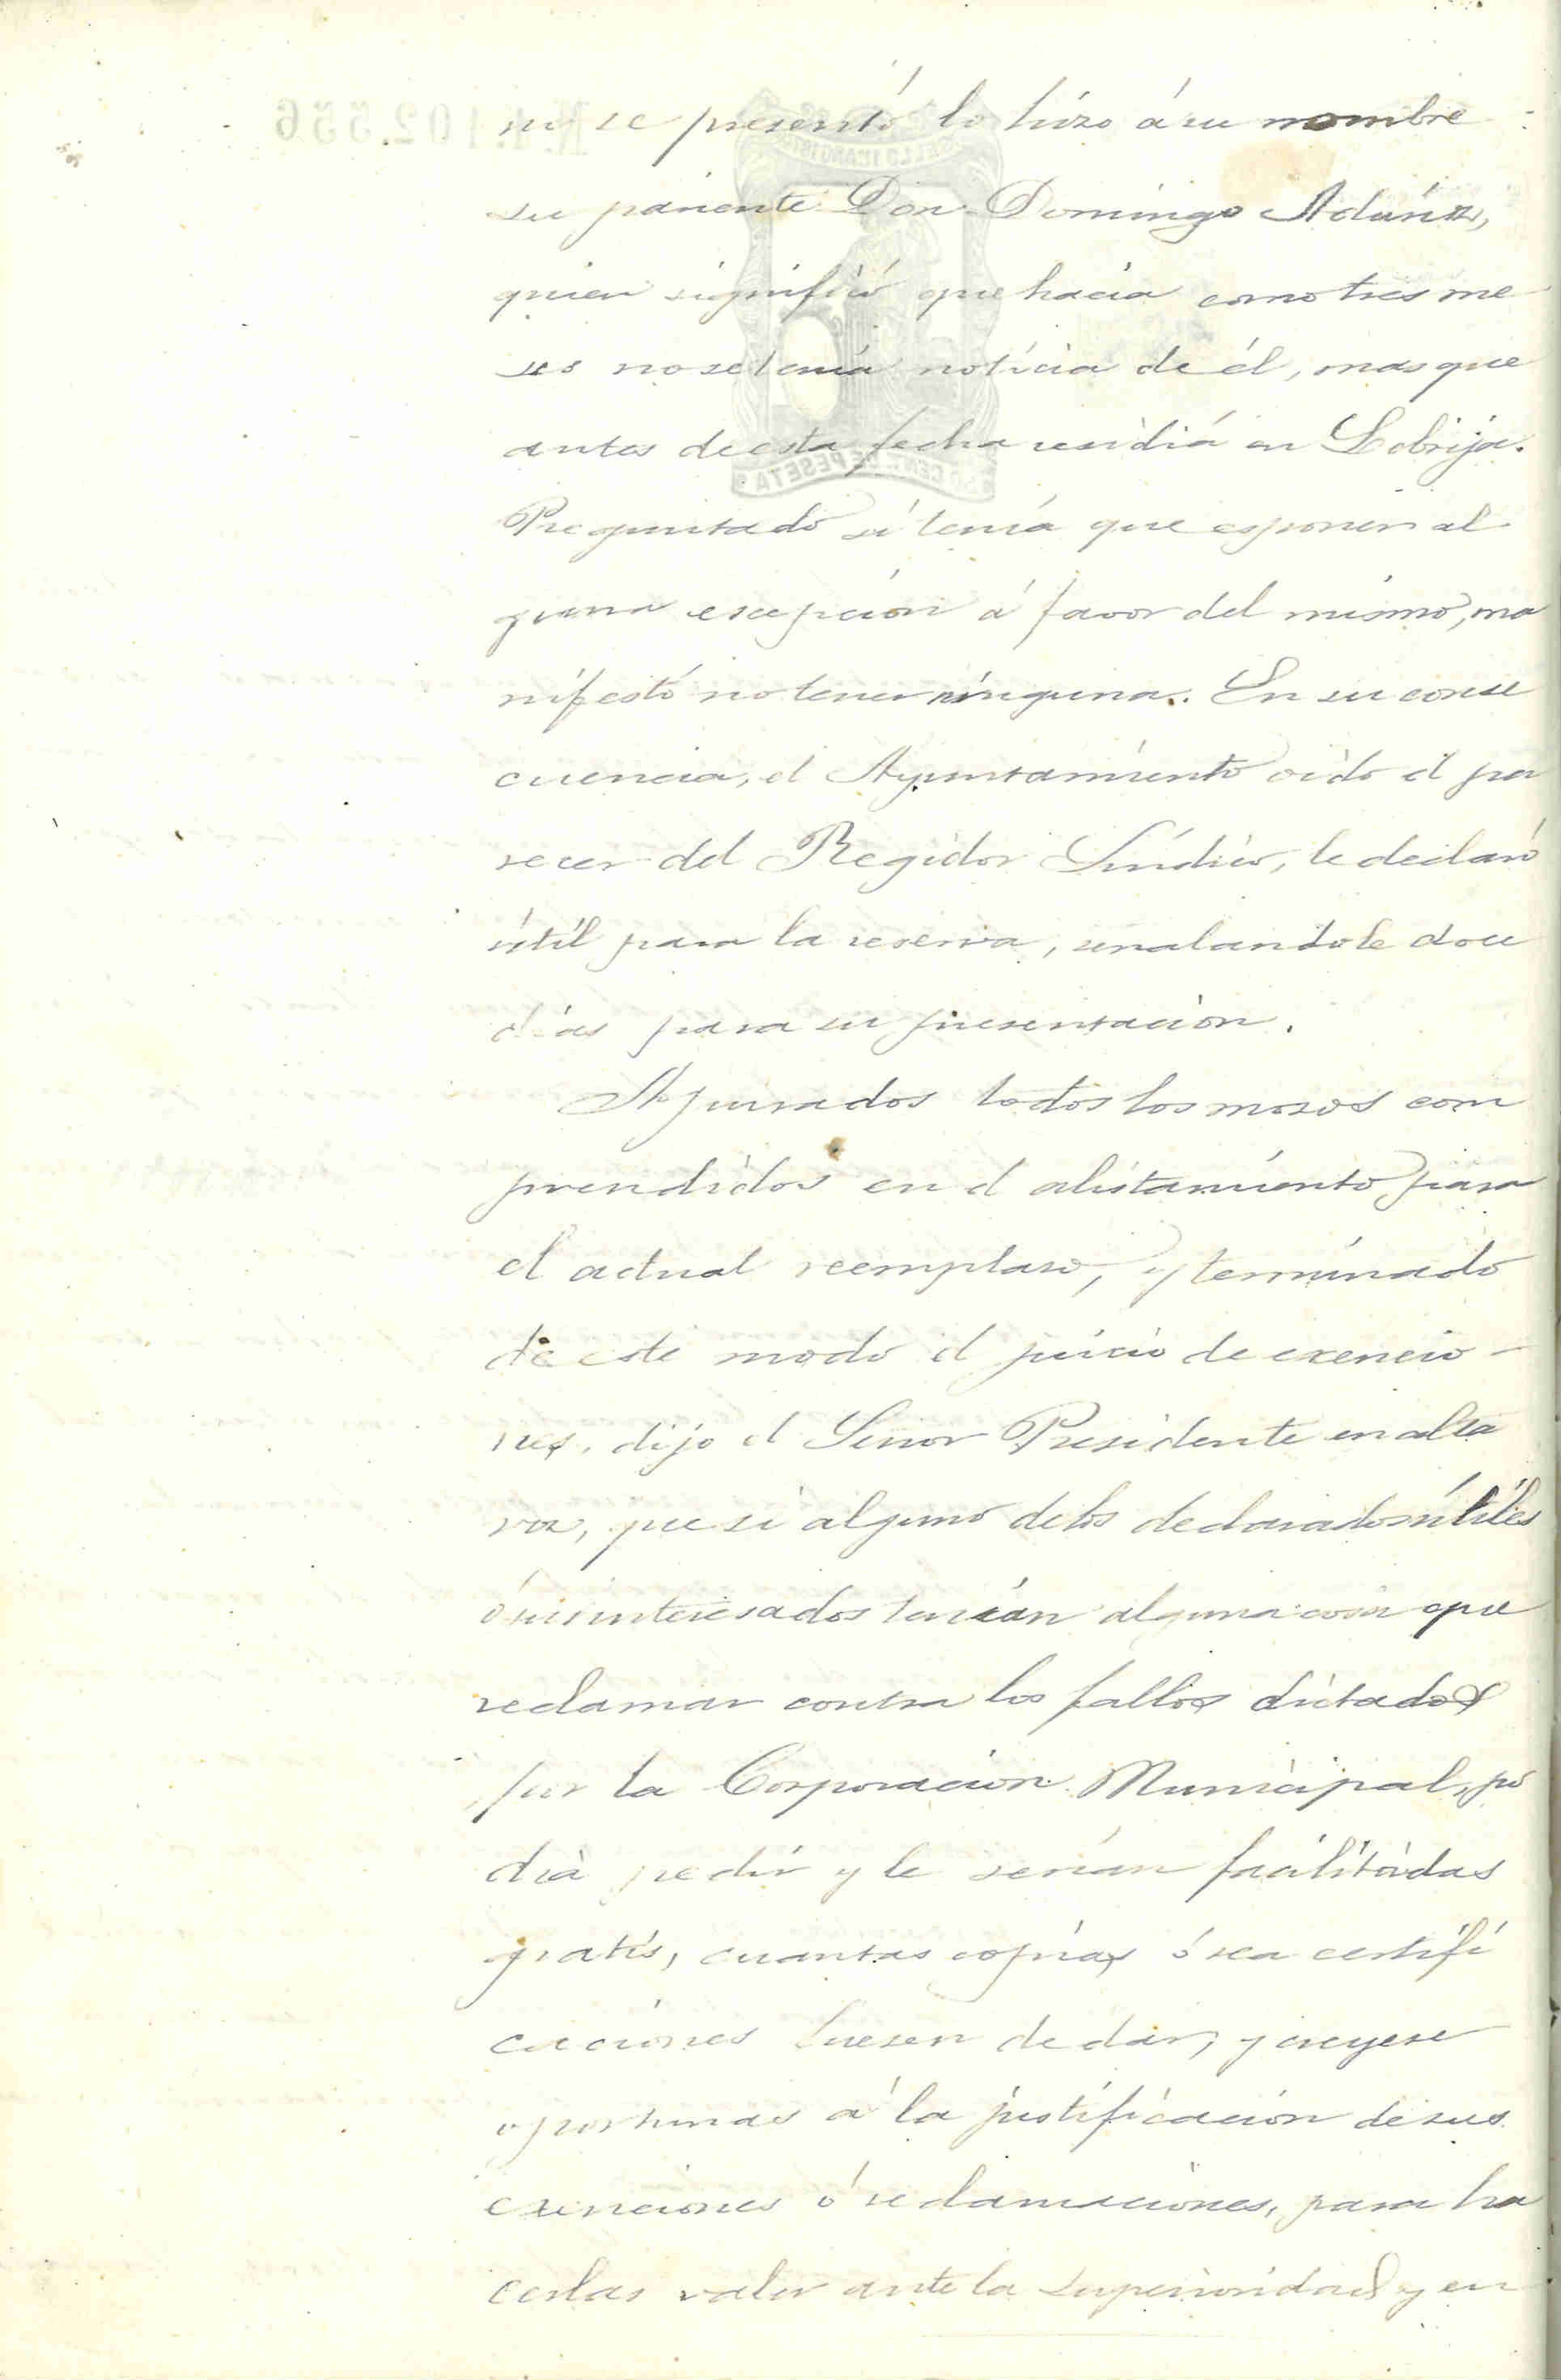 ni se presentó lo hizo á su nombre
su pariente Don Domingo
quien significó que hacia como tres me
ses no se tenía noticia de él, mas que
antes de esta fecha residiá en Lebrija.
Preguntado si tenía que esponer al
guna escepcion á favor del mismo, ma
nifestó no tener ninguna. En su conse
cuencia, el Ayuntamiento oido el pa
recer del Regidor Síndico, le declaró
útil para la reserva, senalandole doce
dias para su presentación.
Apurados todos los mozos com
prendidos en el alistamiento para
el actual reemplazo, y terminado
de este modo el juicio de exencio-
nes, dijo el Senor Presidente en alta
voz, que si alguno de los declarados útiles
ó sus interesados tenían alguna cosa que
reclamar contra los fallos dictados
por la Corporacion Municipal, po
dia pedir y le serian facilitadas
gratis, cuantas copias ó sea certifi
caciones fuesen de dar, y creyese
oportunas á la justificación de sus
exenciones ó reclamaciones, para ha
cerlas valer ante la superioridad y en
N.4.102.556
50 CENT. DE PESETA